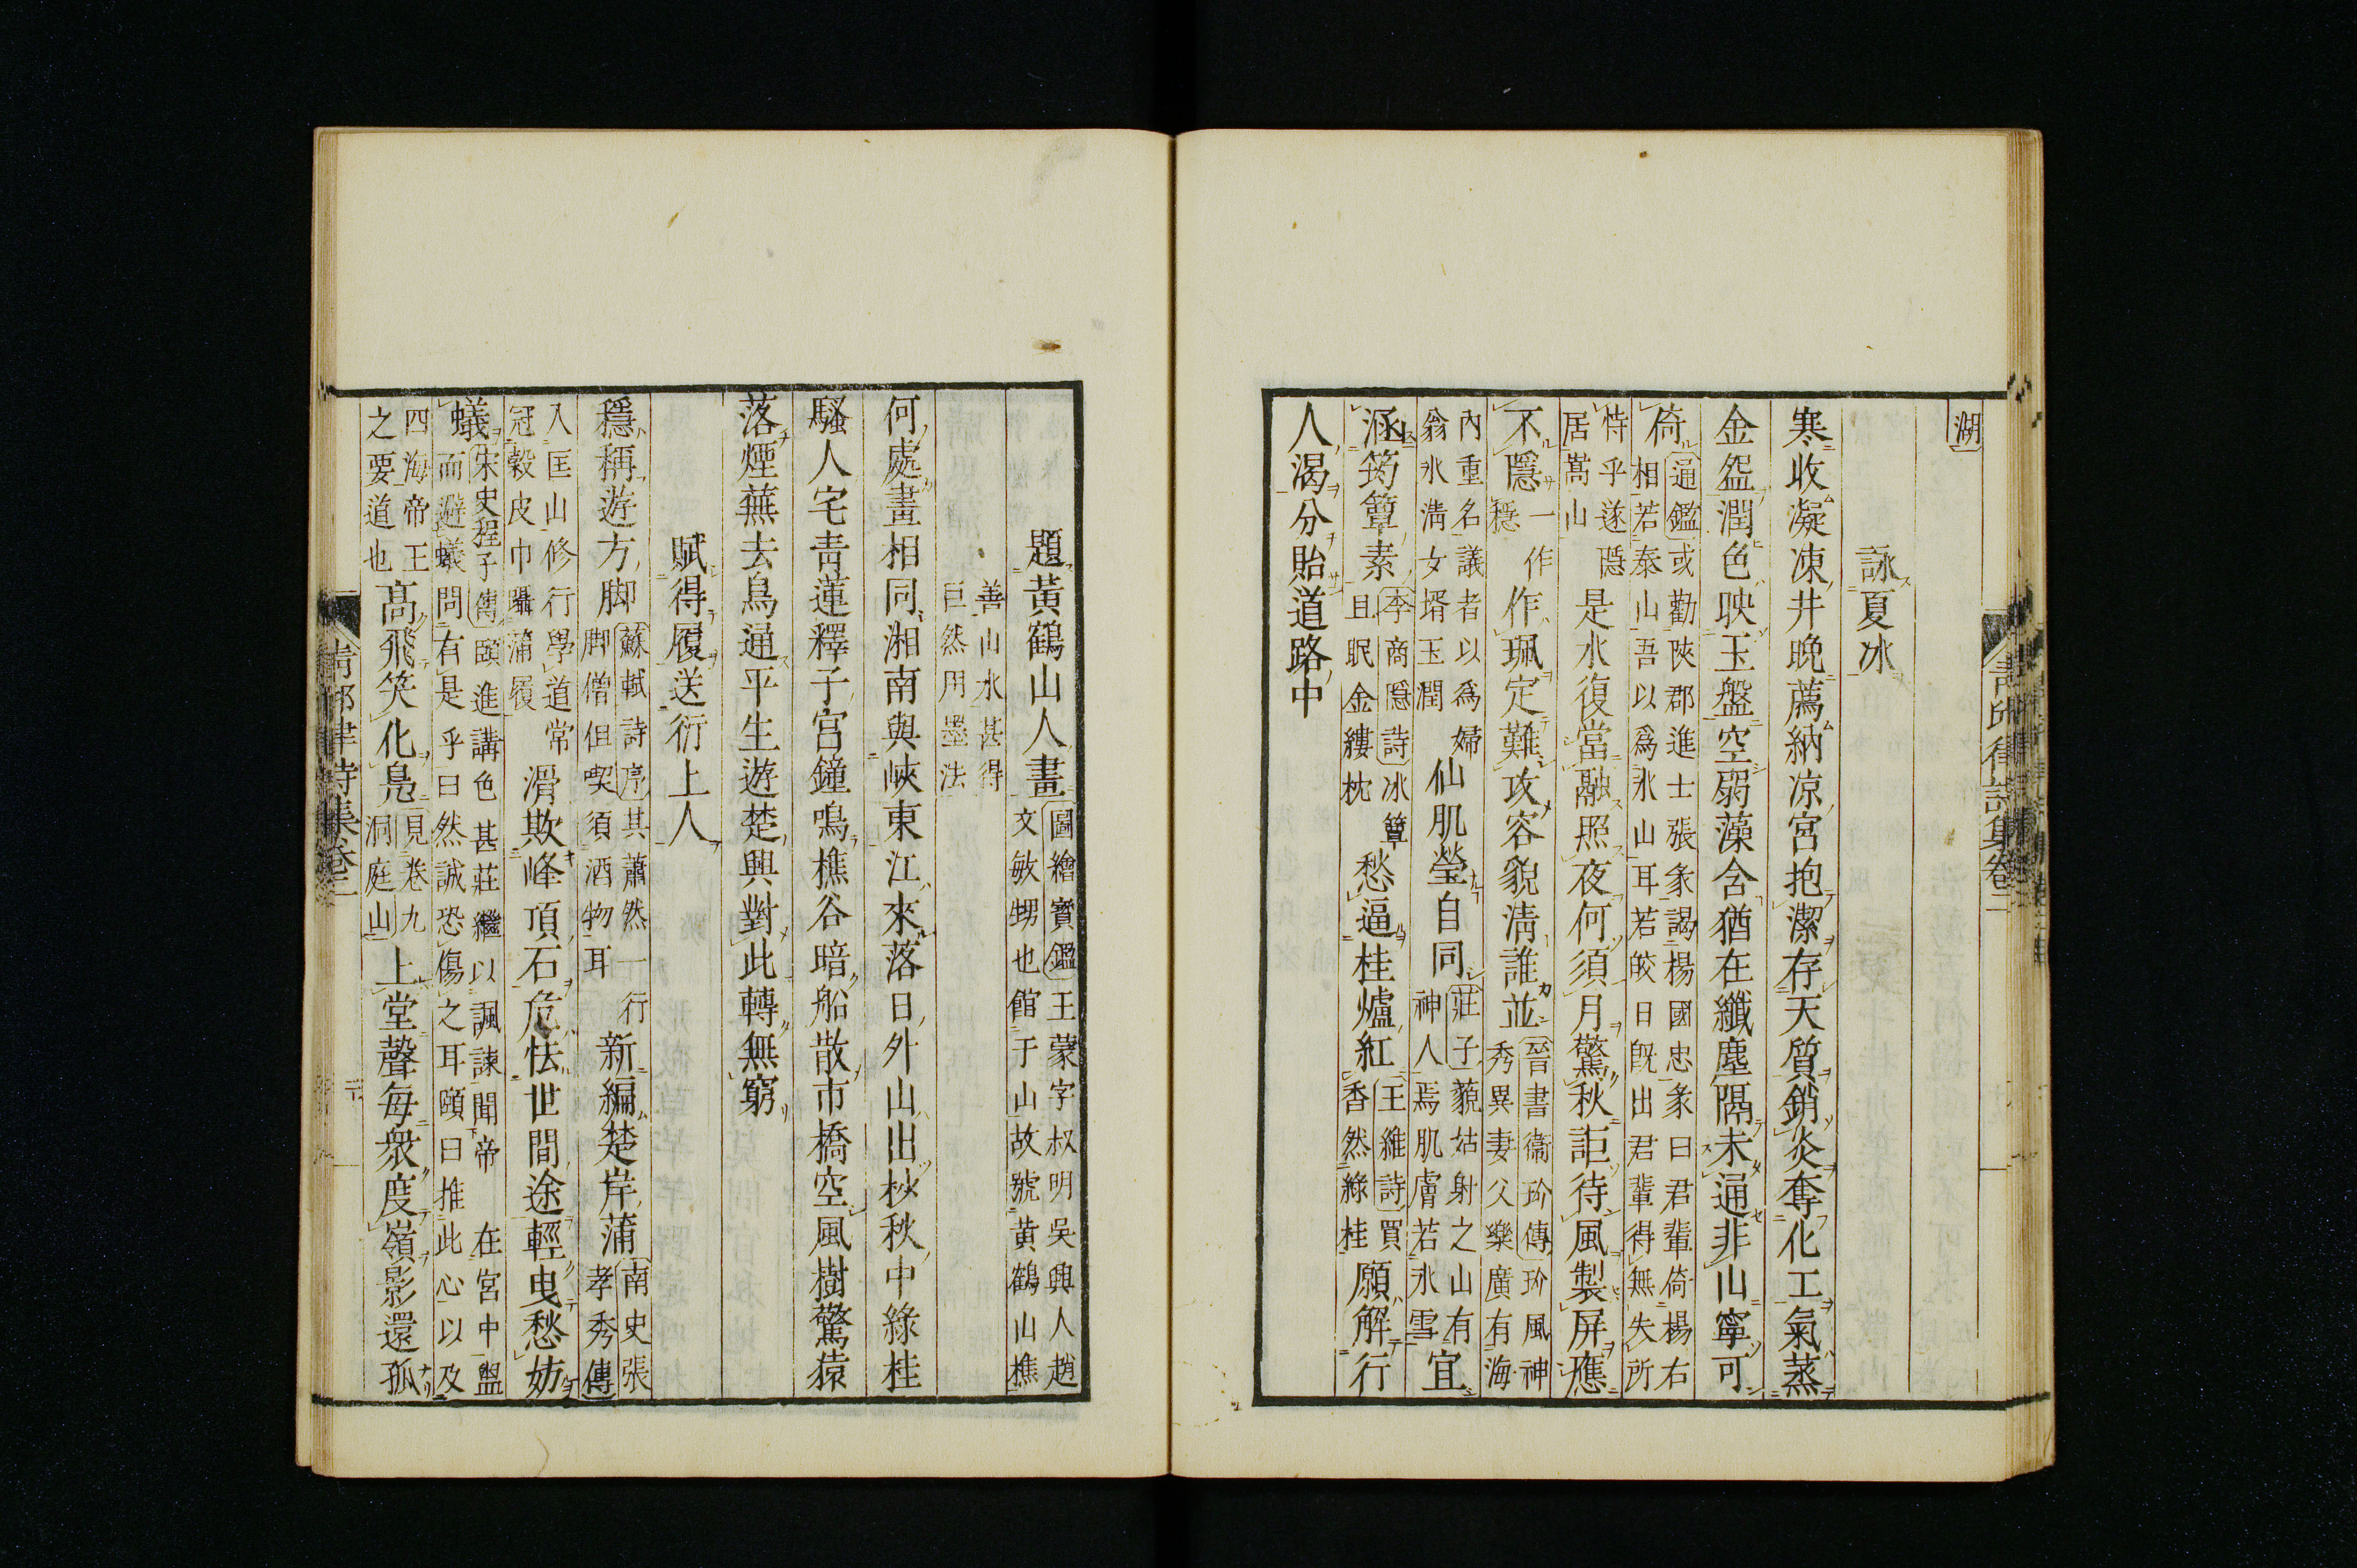 湖
詠夏冰
寒收凝凍井晩薦納凉宮抱潔存天質銷炎奪化工氣蒸
金盌潤色映玉盤空弱藻含猶在纖塵隔未通非山寧可
倚通鑑或勸陝郡進士張彖謁楊國忠彖曰君輩倚楊右相若泰山吾以爲氷山耳若皎日旣出君輩得無失所
恃乎遂隱居嵩山是水復當融照夜何須月驚秋詎待風製屏應
不隱一作穩作珮定難攻容貌淸誰並晉書衞玠傳玠風神秀異妻父樂廣有海
內重名議者以爲婦翁氷淸女壻玉潤仙肌瑩自同莊子藐姑射之山有神人焉肌膚若氷雪宜
涵筠簟素李商隱詩冰簟且眠金縷枕愁逼桂爐紅王維詩買香然綠桂願解行
人渴分貽道路中
靑邱律詩集卷二
題黃鶴山人畫圖繪寶鑑王蒙字叔明吳興人趙文敏甥也館于山故號黄鶴山樵
善山水甚得巨然用墨法
何處畫相同湘南與峽東江來落日外山出杪秋中綠桂
騷人宅靑蓮釋子宮鐘鳴樵谷暗船散市橋空風樹驚猿
落煙蕪去鳥通平生遊楚興對此轉無窮
賦得履送衍上人
穩稱遊方脚蘇軾詩序其蕭然一行脚僧但喫須酒物耳新編楚岸蒲南史張孝秀傳
入匡山修行學道常冠穀皮巾躡蒲履滑欺峰頂石危怯世間途輕曳愁妨
蟻宋史程子傳頤進講色甚莊繼以諷諫聞帝在宮中盥而避蟻問有是乎曰然誠恐傷之耳頤曰推此心以及
四海帝王之要道也高飛笑化鳧見卷九洞庭山上堂聲每衆度嶺影還孤
靑邱律詩集卷二